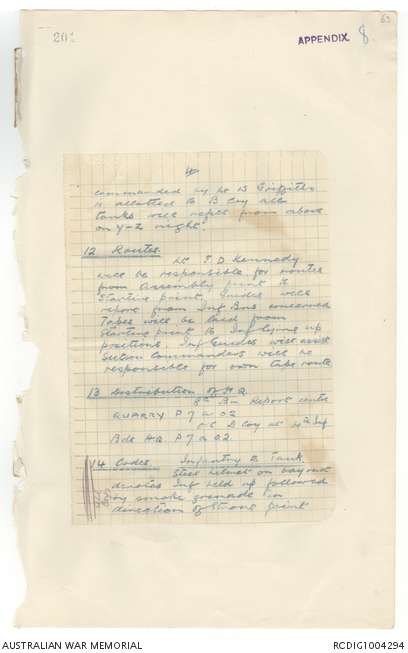 63
20
APPENDIX 8
4
commanded by Lt B Griffiths
is allotted to B Coy all
tanks will refill from above
on Y-2 night.
12 Routes.
Lt T. D Kennedy
will be responsible for routes
from Assembly point to
Starting point, Guides will
report from Inf Bns concerned
Tapes will be laid from
starting point to Inf lying up
positions. Inf Guides will assist
Section Commanders will be
responsible for own tape route
13 Distribution of H.Q.
8th Bn Report centre
QUARRY P 7 a 02
O.C. B Coy at 4th Inf
Bde HQ P 7 a 02
14 Codes. Infantry to Tank
Steel Helmet on bayonet
denotes Inf held up followed
by smoke grenade in
direction of strong point
AUSTRALIAN WAR MEMORIAL
RCDIG1004294